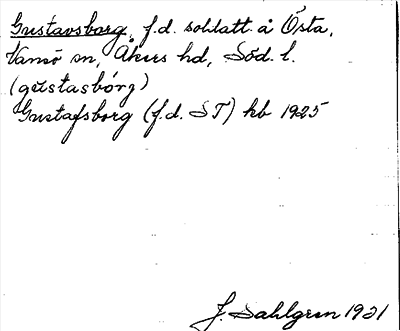 Gustavsborg, f.d. soldatt. å Östa,
Vansö sn, Åkers hd, Söd. l.
(gɵstasbórg)
Gustafsborg (f.d. ST) kb 1925
J. Sahlgren 1921